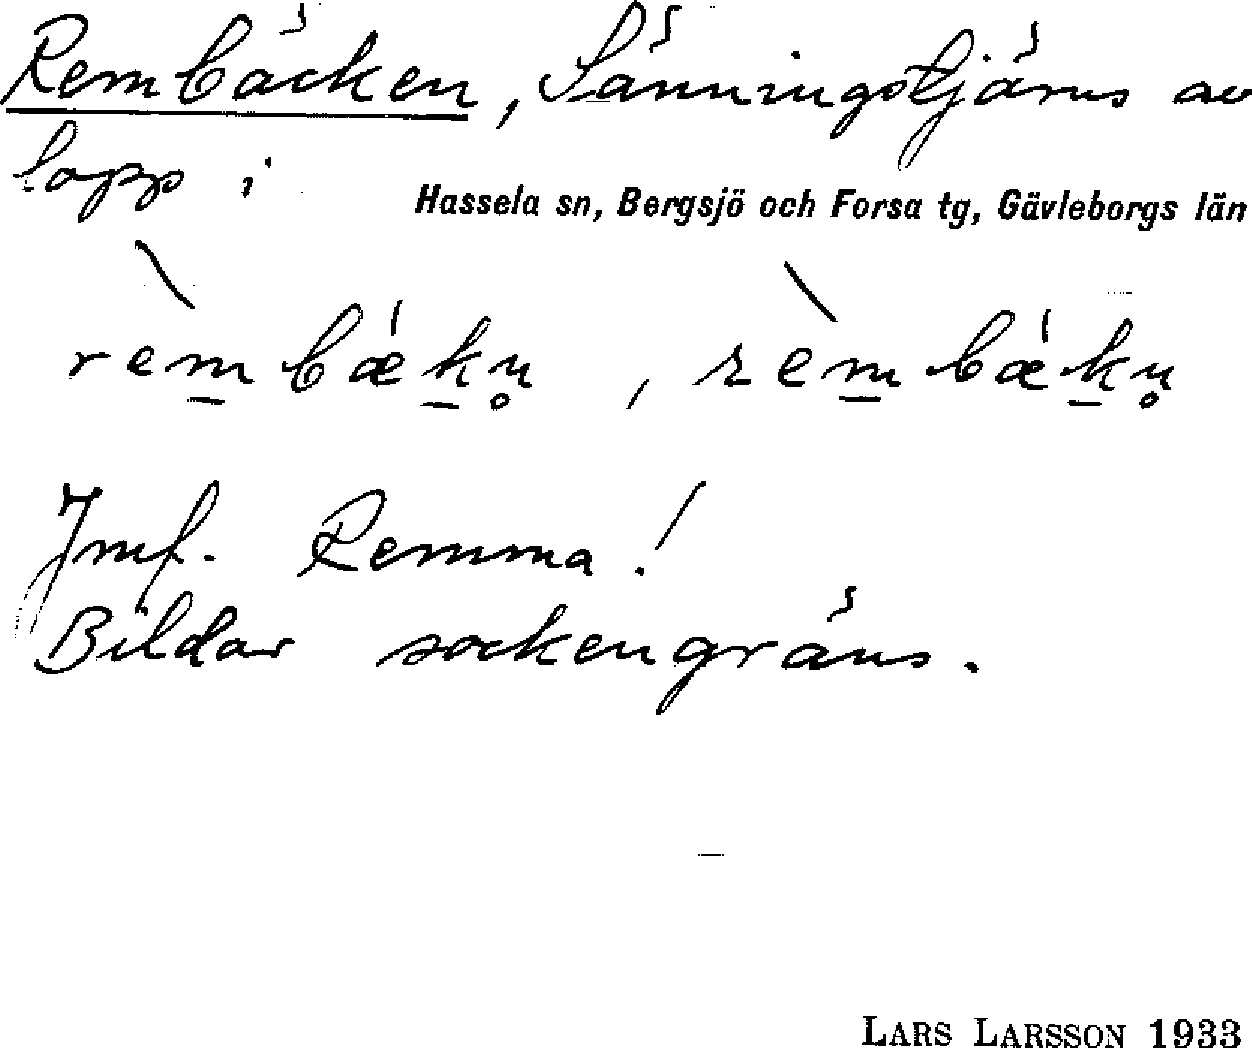 Rembäcken, Sänningstjärns av
lopp i
Hassela sn, Bergsjö och Forsa tg, Gävleborgs län
rèm̲bǽk̲n̥ , rèm̲bǽk̲n̥
Jmf. Remma!
Bildar sockengräns.
LARS LARSSON 1933